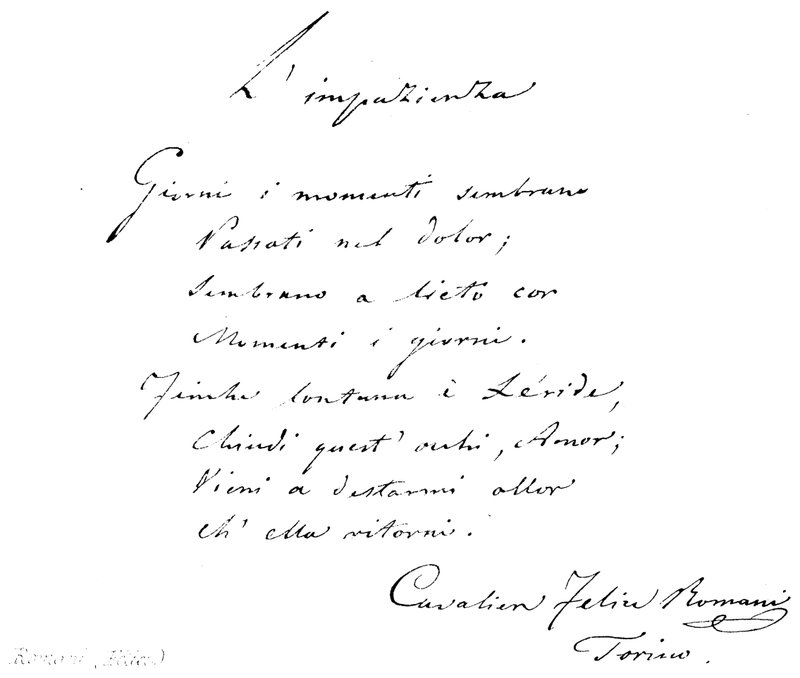 L'impazienza
Giorni i momenti sembrano
Passati nel dolor;
Sembrano a lieto cor
Momenti i giorni.
Finche lontana è Léride,
Chiudi quest' occhi, Amor;
Vieni a destarmi allor
Ch' ella ritorni.
Cavalier Felice Romani
Torino.
Romani, Felice)